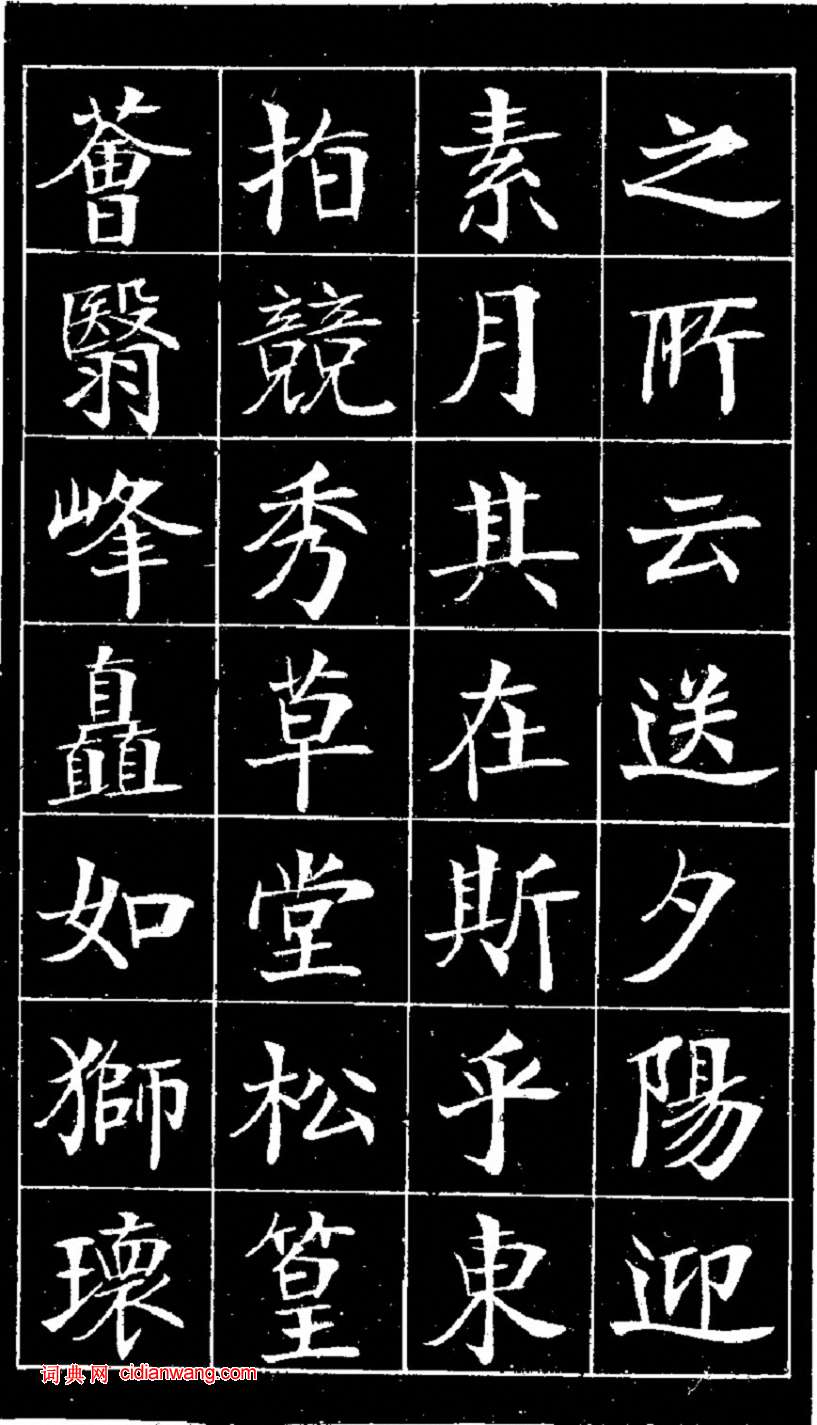 之所云送夕陽迎
素月其在斯乎東
拍競秀草堂松篁
薈翳峰矗如獅瓌
词典网 cidianwang.com